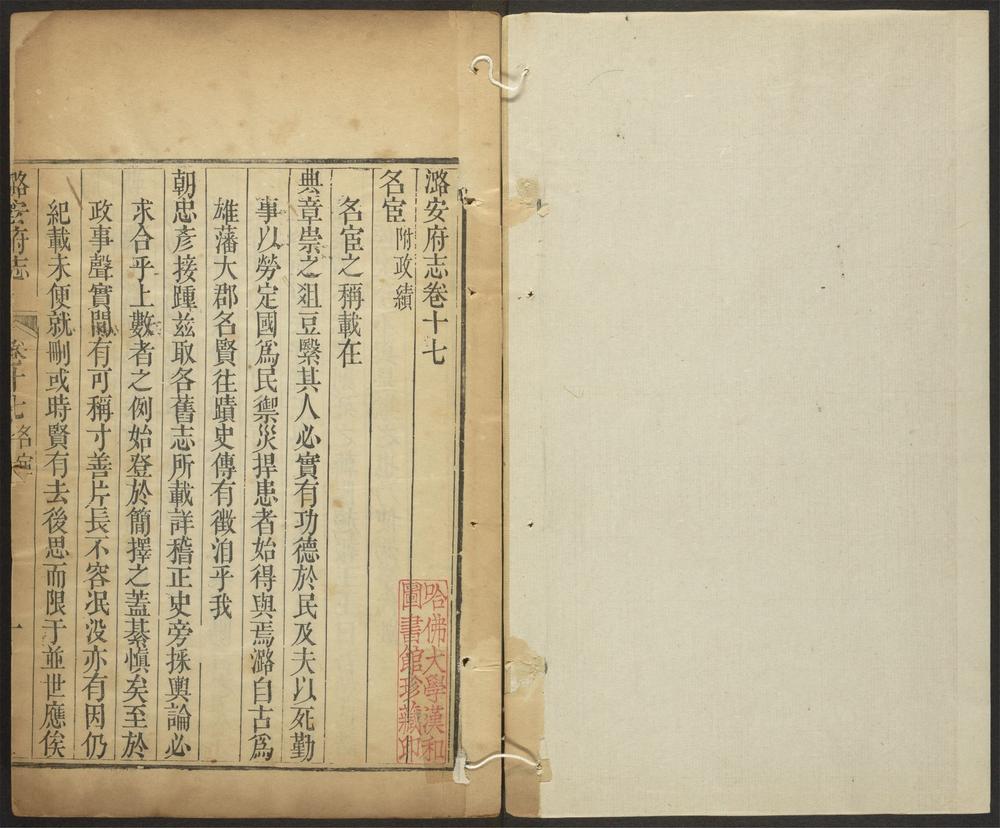 潞安府志卷十七
名宦附政績
名宦之稱載在
典章崇之俎豆繄其人必實有功德於民及夫以死勤
事以勞定國爲民禦災捍患者始得與焉潞自古爲
雄藩大郡名賢往蹟史傳有徵洎乎我
朝忠彥接踵茲取各舊志所載詳稽正史旁採輿論必
求合乎上數者之例始登於簡擇之蓋綦慎矣至於
政事聲實間有可稱寸善片長不容泯没亦有因仍
紀載未便就刪或時賢有去後思而限于並世應俟
潞安府志
卷十七 名宦
一
哈佛大學漢和
圖書館珍藏印